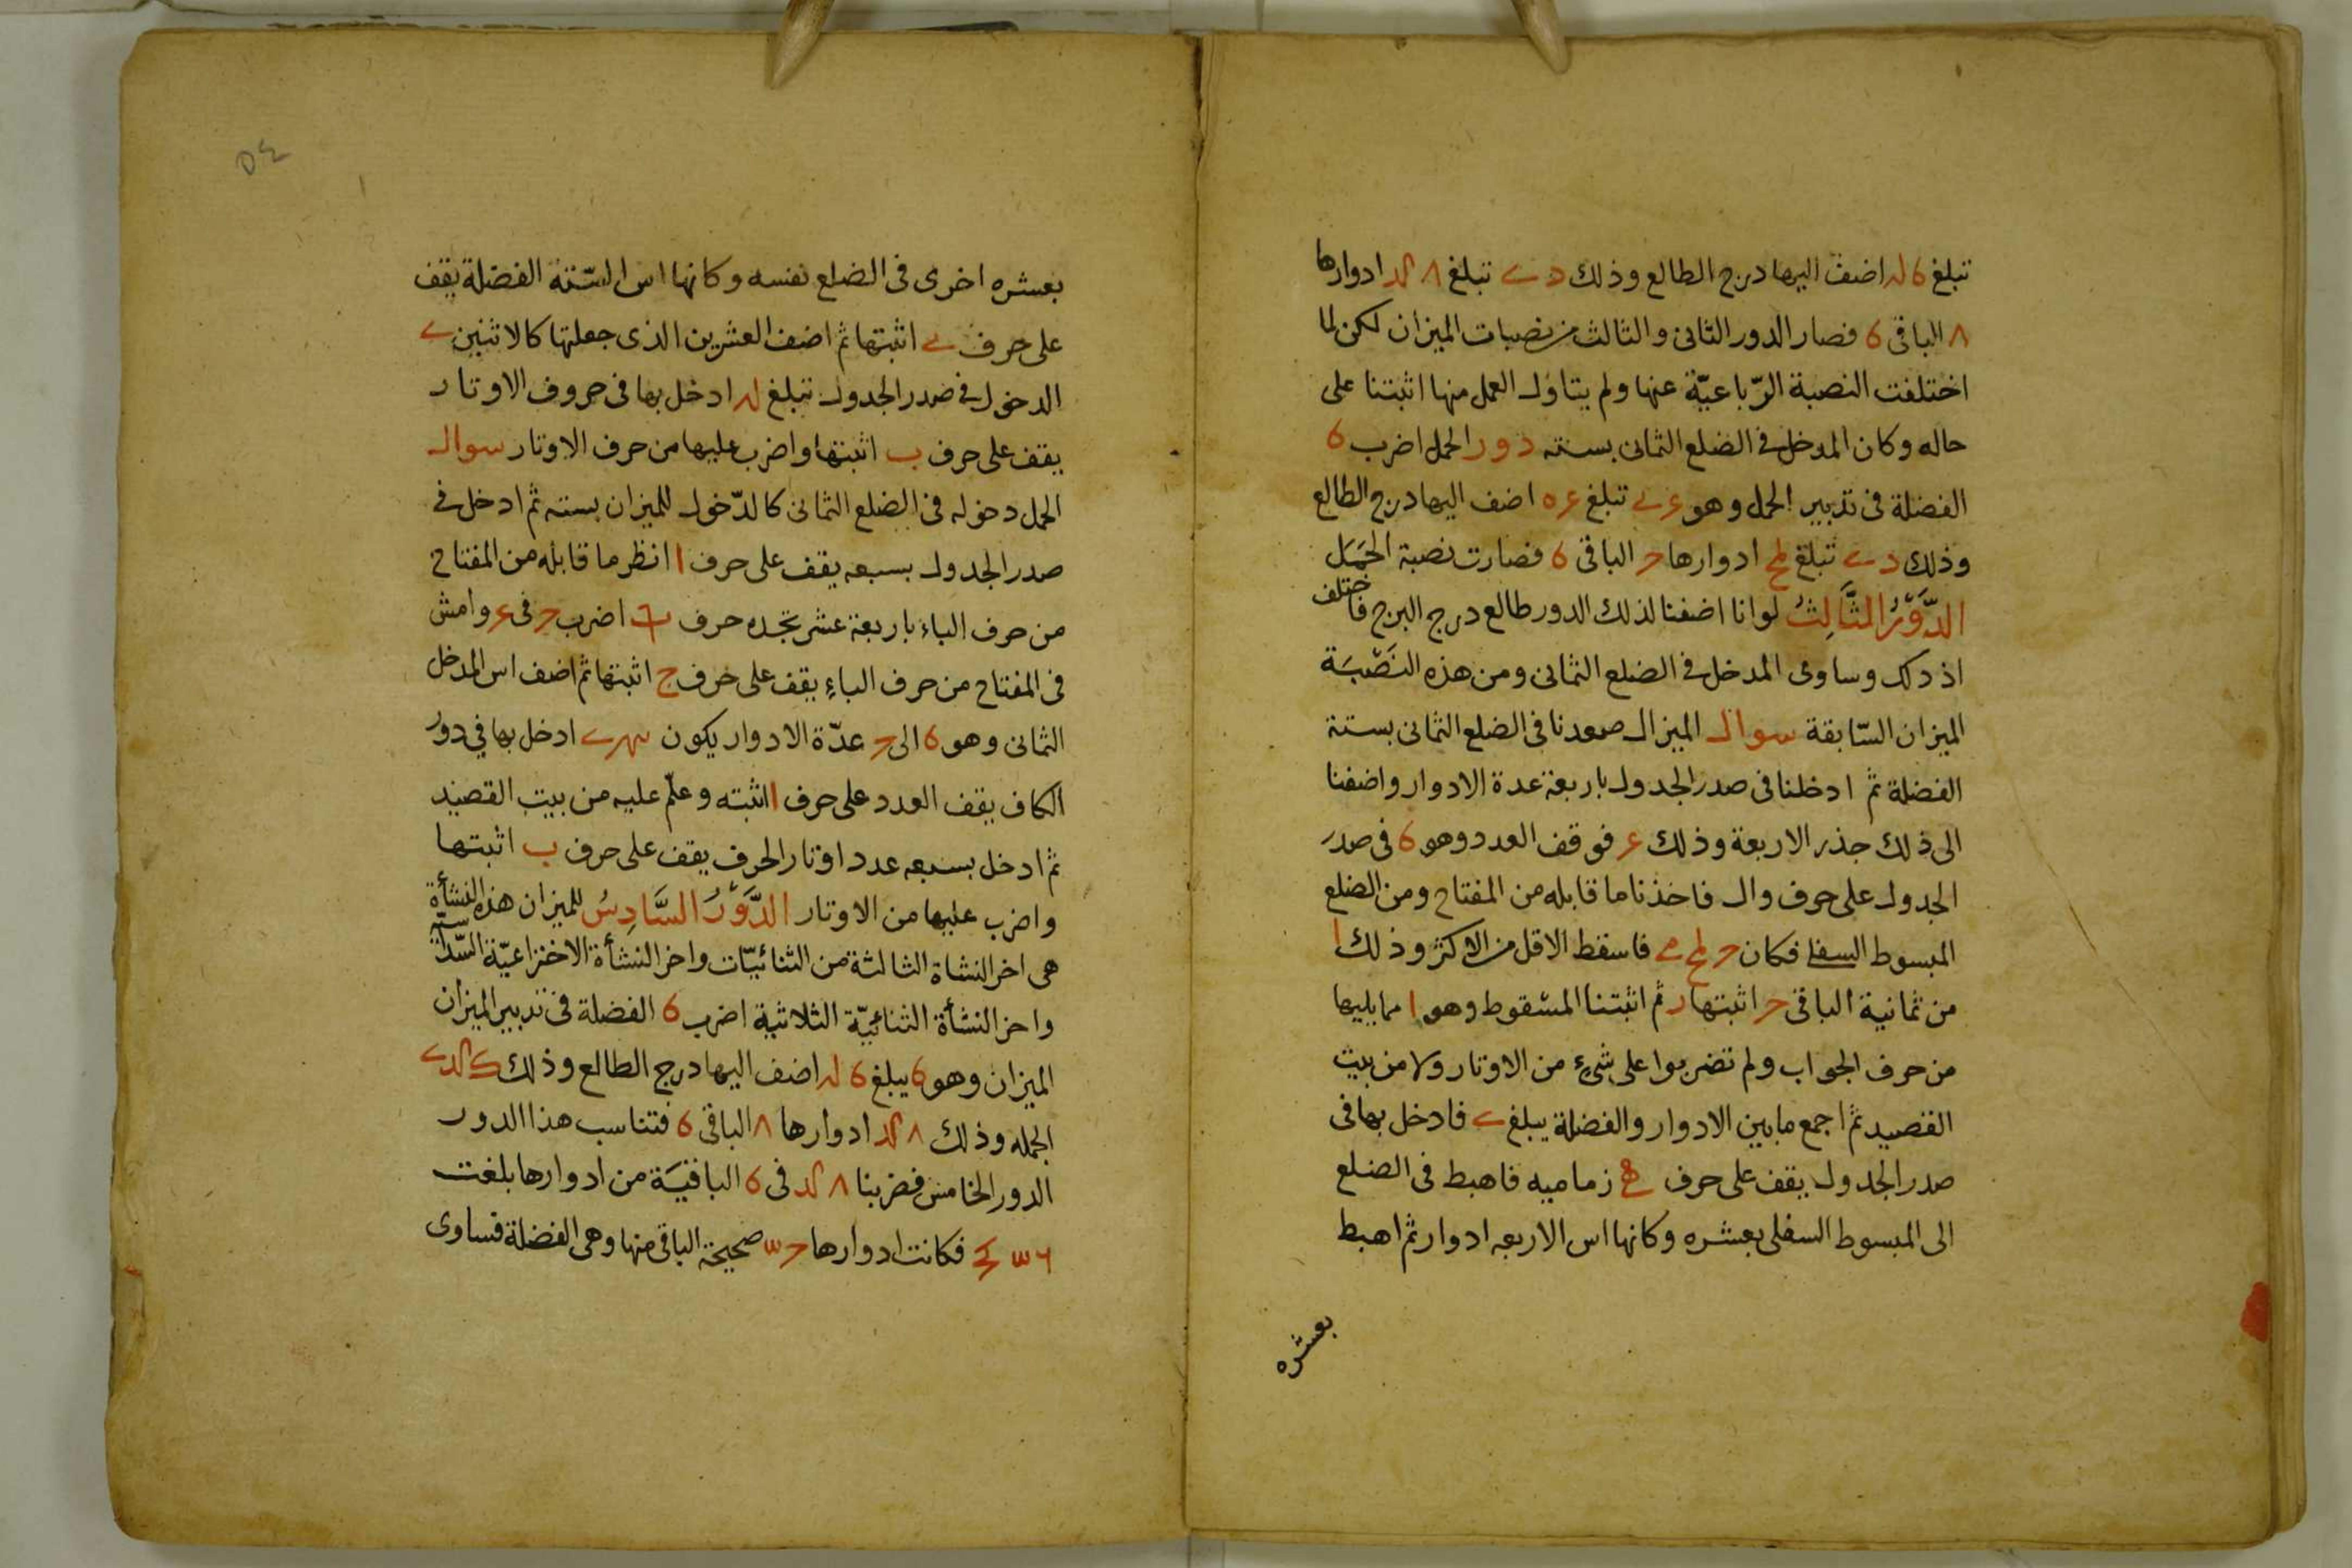 تبلغ ٤ لد اضف اليها درج الطالع وذلك د ے تبلغ ٨ لد ادوارها
٨ الباقى 6 فصار الدور الثانى والثالث من نصبات الميزان لكن لما
اختلفت النصبة الرّباعيّة عنها ولم يتاول العمل منها اثبتنا على
حاله وكان المدخل فى الضلع الثمانى بسته دور الحمل اضرب 6
الفضلة فى تدبير الحمل وهو تبلغ اضف اليها درج الطالع
وذلك د ے تبلغ ادوارها ح الباقى 6 فصارت نصبة الحَمَل
الدَّوْرُ الثَّالِثُ لو انا اضفنا لذلك الدور طالع درج البرج فاختلف
اذ ذلك وساوى المدخل فى الضلع الثمانى ومن هذه النَصْبَة
الميزان السّابقة سوال الميزال صعدنا فى الضلع الثمانى بستة
الفضلة ثم ادخلنا فى صدر الجدول باربعة عدة الادوار واضفنا
الى ذلك جذر الاربعة وذلك ع فوقف العدد وهو 6 فى صدر
الجدول على حرف وال فاخذنا ما قابله من المفتاح ومن الضلع
المبسوط السفلى فكان فاسقط الاقل من الاكثر وذلك ا
من ثمانية الباقى ح اثبتها ر ثم اثبتنا المسقوط وهو ا مما يليها
من حرف الجواب ولم تضربوا على شىءٍ من الاوتار ولا من بيت
القصيد ثم اجمع ما بين الادوار والفضلة يبلغ ے فادخل بها فى
صدر الجدول يقف على حرف زماميه فاهبط فى الضلع
الى المبسوط السفلى بعشره وكانها اس الاربعه ادوار ثم اهبط
بعشره
بعشره اخرى فى الضلع نفسه وكانها اس الستّة الفضلة يقف
على حرف ے اثبتها ثم اضف العشرين الذى جعلتها كالاثنين ے
الدخول فى صدر الجدول تبلغ لد ادخل بها فى حروف الاوتار
يقف على حرف ب اثبتها واضرب عليها من حرف الاوتار سوال
الحمل دخوله فى الضلع الثمانى كالدّخول للميزان بسته ثم ادخل فى
صدر الجدول بسبعه يقف على حرف ا انظر ما قابله من المفتاح
من حرف الباء باربعة عشر تجده حرف اضرب ح فى ع وامش
فى المفتاح من حرف الباءِ يقف على حرف ج اثبتها ثم اضف اس المدخل
الثمانى وهو 6 الى ح عدّة الادوار يكون ادخل بها فى دور
الكاف يقف العدد على حرف ا اثبته وعلّم عليه من بيت القصيد
ثم ادخل بسبعه عدد اوتار الحرف يقف على حرف ب اثبتها
واضرب عليها من الاوتار الدَّوْرُ السَّادِسُ للميزان هذه النشأة
هى اخر النشاة الثالثة من الثنائيّات واخر النشأة الاختراعيّة السّداسيّه
واخر النشأة الثنائيّة الثلاثية اضرب 6 الفضلة فى تدبير الميزان
الميزان وهو 6 يبلغ 6 لد اضف اليها درج الطالع وذلك
الجمله وذلك ٨ لد ادوارها ٨ الباقى 6 فتناسب هذا الدور
الدور الخامس فضربنا ٨ لد فى 6 الباقيَة من ادوارها بلغت
فكانت ادوارها صحيحة الباقى منها وهى الفضلة فساوى